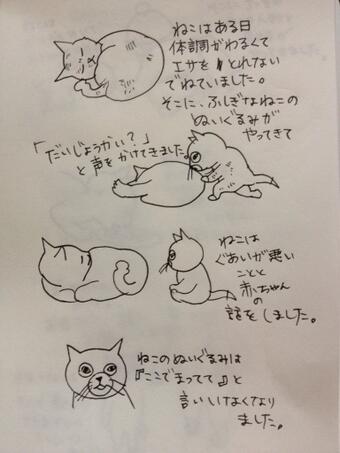 ねこはある日
体調がわるくて
エサをとれない
でねていました。
そこに、ふしぎなねこの
ぬいぐるみが
やってきて
「だいじょうかい?」
と声をかけてきました。
ねこは
ぐあいが悪い
ことと
赤ちゃん
の
話をしました。
ねこのぬいぐるみは
『ここでまってて』と
言いいなくなり
ました。